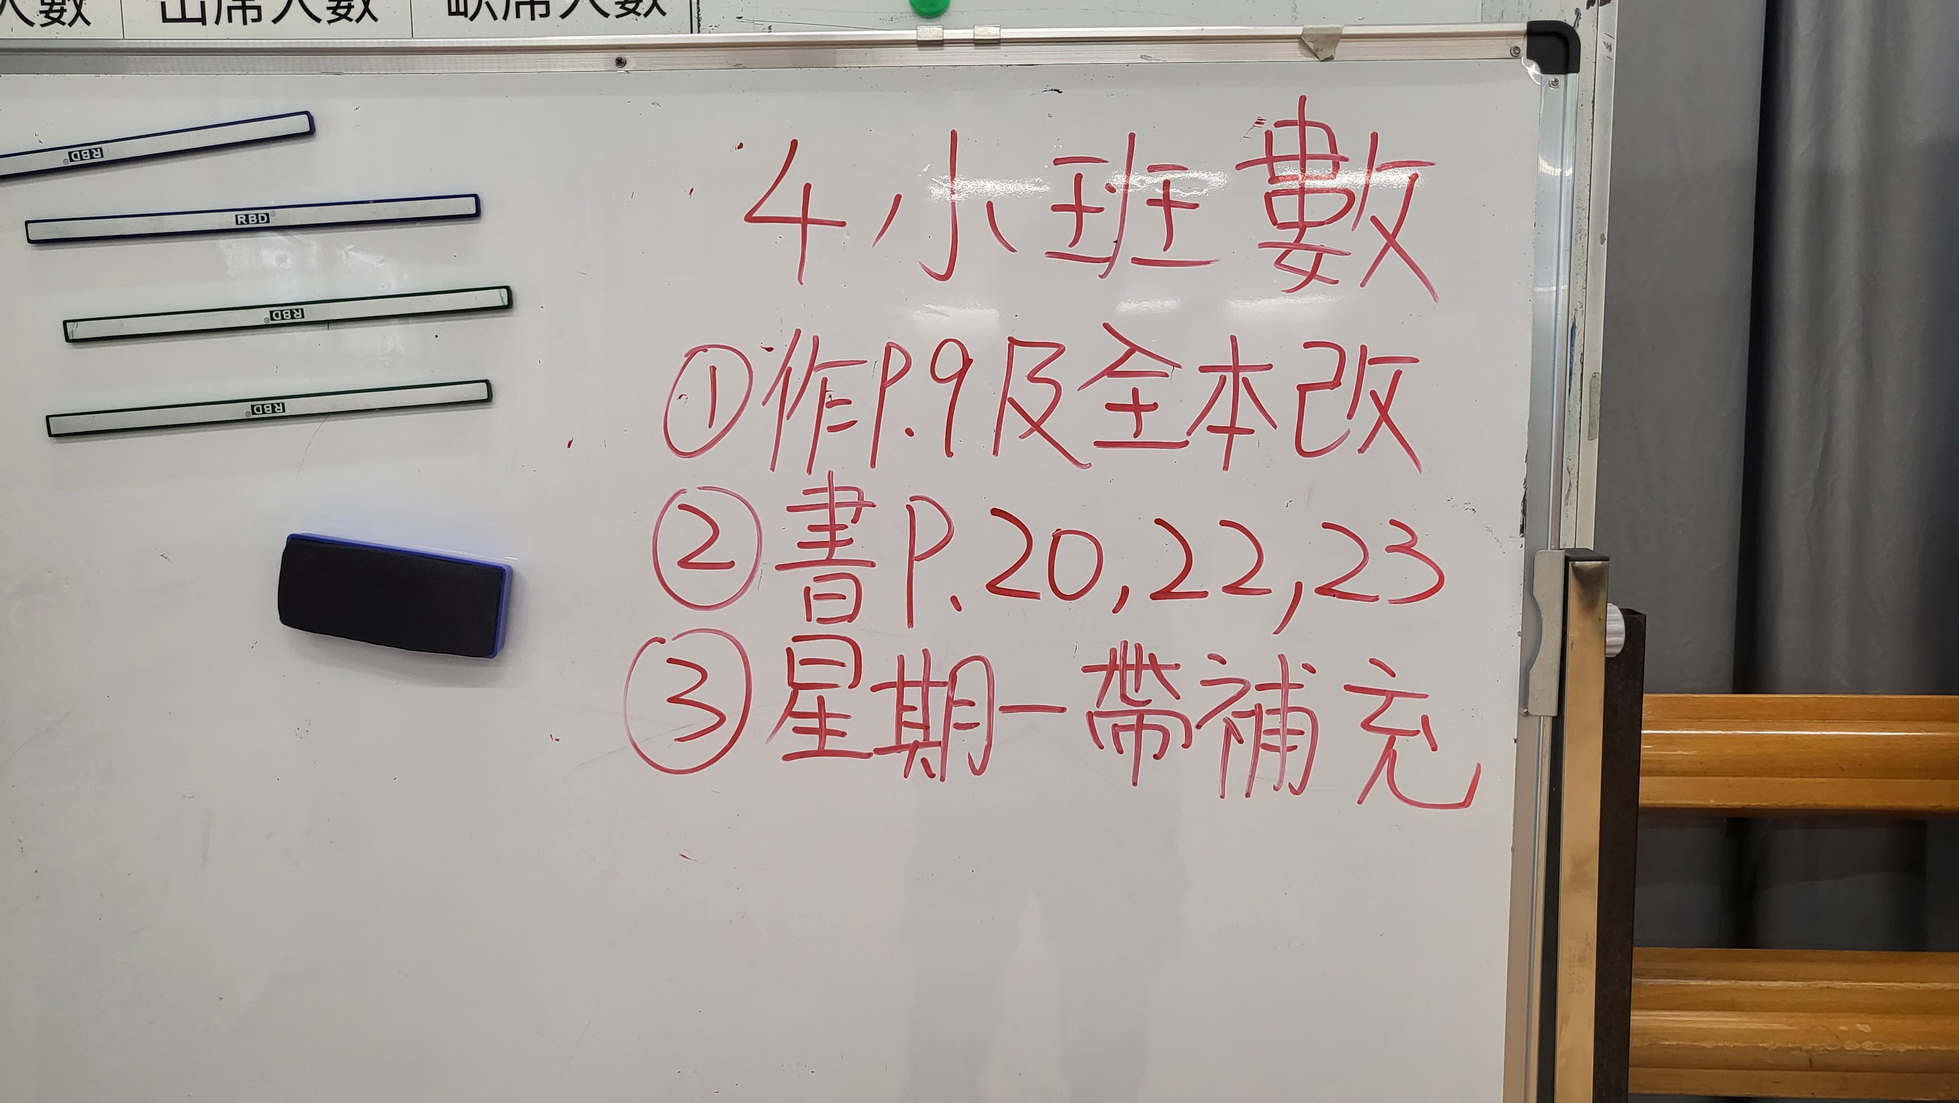 人數 出席人數 缺席人數
RBD
RBD
RBD
RBD
4小班數
①作P.9及全本改
②書P.20,22,23
③星期一帶補充